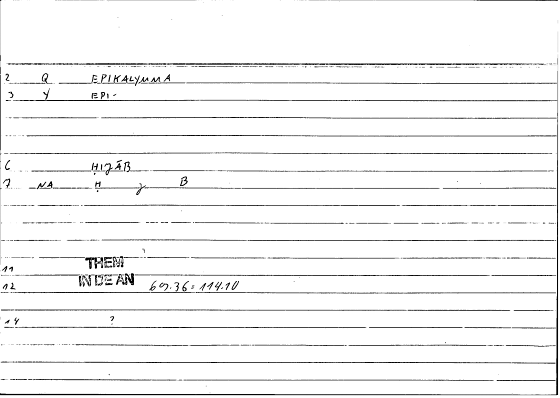 2 Q EPIKALYMMA
3 Y EPI-
6 ḤIǧĀB
7 NA Ḥ ǧ B
11 THEM
12 IN DE AN 69.36 = 114.10
14 ?